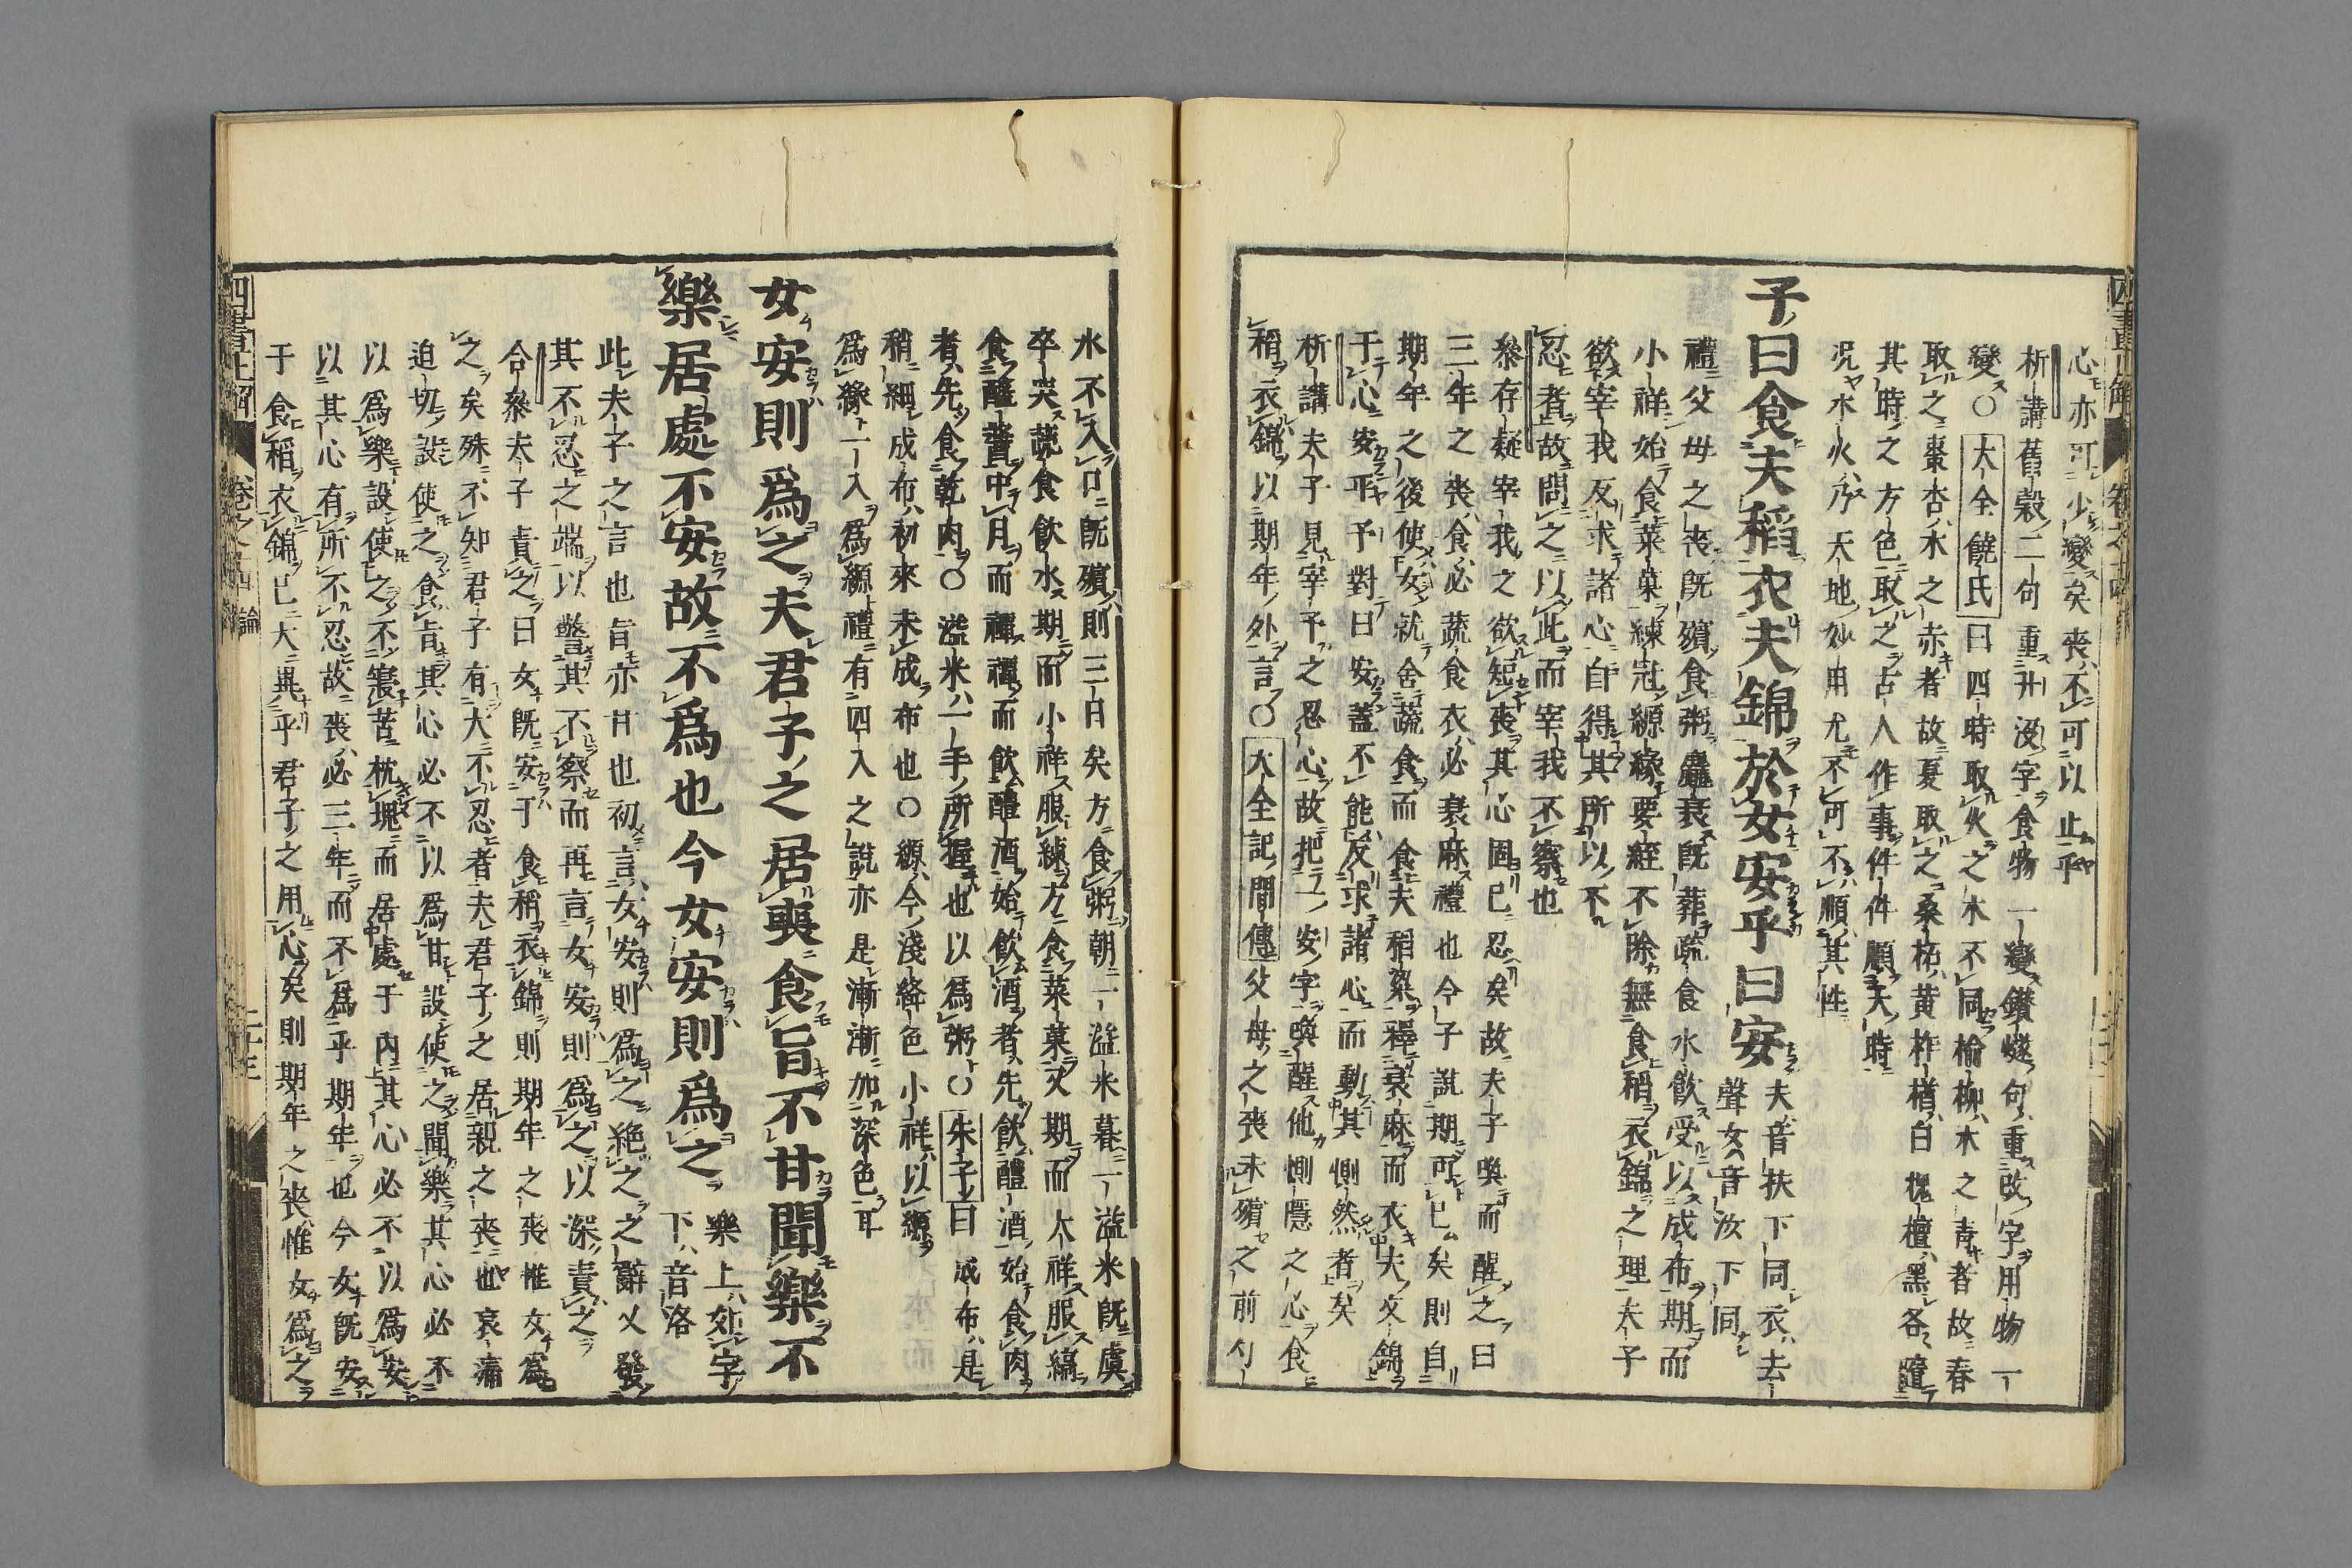 心亦可少變矣喪不可以止乎
析講舊穀二句重升沒字食物一變鑽燧句重改字用物一
變○大全饒氏曰四時取火之木不同榆柳木之青者故春
取之棗杏木之赤者故夏取之桑柘黃柞楢白槐檀黑各隨
其時之方色取之古人作事件件順天時
況水火乃天地妙用尤不可不順其性
子曰食夫稻衣夫錦於女安乎曰安
夫音扶下同衣去
聲女音汝下同
禮父母之喪既殯食粥麤衰既葬疏食水飲受以成布期而
小祥始食菜菓練冠縓緣要絰不除無食稻衣錦之理夫子
欲宰我反求諸心自得其所以不
忍者故問之以此而宰我不察也
叅存疑宰我之欲短喪其心固已忍矣故夫子喚而醒之曰
三年之喪食必蔬食衣必衰麻禮也今子說期可已矣則自
期年之後使女就舍蔬食而食夫稻粱釋衰麻而衣夫文錦
于心安乎予對曰安蓋不能反求諸心而動其惻然者矣
析講夫子見宰予之忍心故把一安字喚醒他惻隱之心食
稻衣錦以期年外言○大全記問傳父母之喪未殯之前勺
水不入口既殯則三日矣方食粥朝一溢米暮一溢米既虞
卒哭蔬食飲水期而小祥服練方食菜菓又期而大祥服縞
食醯醬中月而禫禫而飲醴酒始飲酒者先飲醴酒始食肉
者先食乾肉○溢米一手所握也以為粥○朱子曰成布是
稍細成布初來未成布也○縓今淺絳色小祥以縓
為緣一入為縓禮有四入之說亦是漸漸加深色耳
女安則爲之夫君子之居喪食旨不甘聞樂不
樂居處不安故不爲也今女安則爲之
樂上如字
下音洛
此夫子之言也旨亦甘也初言女安則爲之絕之之辭又發
其不忍之端以警其不察而再言女安則爲之以深責之
合叅夫子責之曰女既安于食稻衣錦則期年之喪惟女爲
之矣殊不知君子有大不忍者夫君子之居親之喪也哀痛
迫切設使之食旨其心必不以爲甘設使之聞樂其心必不
以爲樂設使之不寢苫枕塊而居處于內其心必不以爲安
以其心有所不忍故喪必三年而不爲乎期年也今女既安
于食稻衣錦已大異乎君子之用心矣則期年之喪惟女爲之